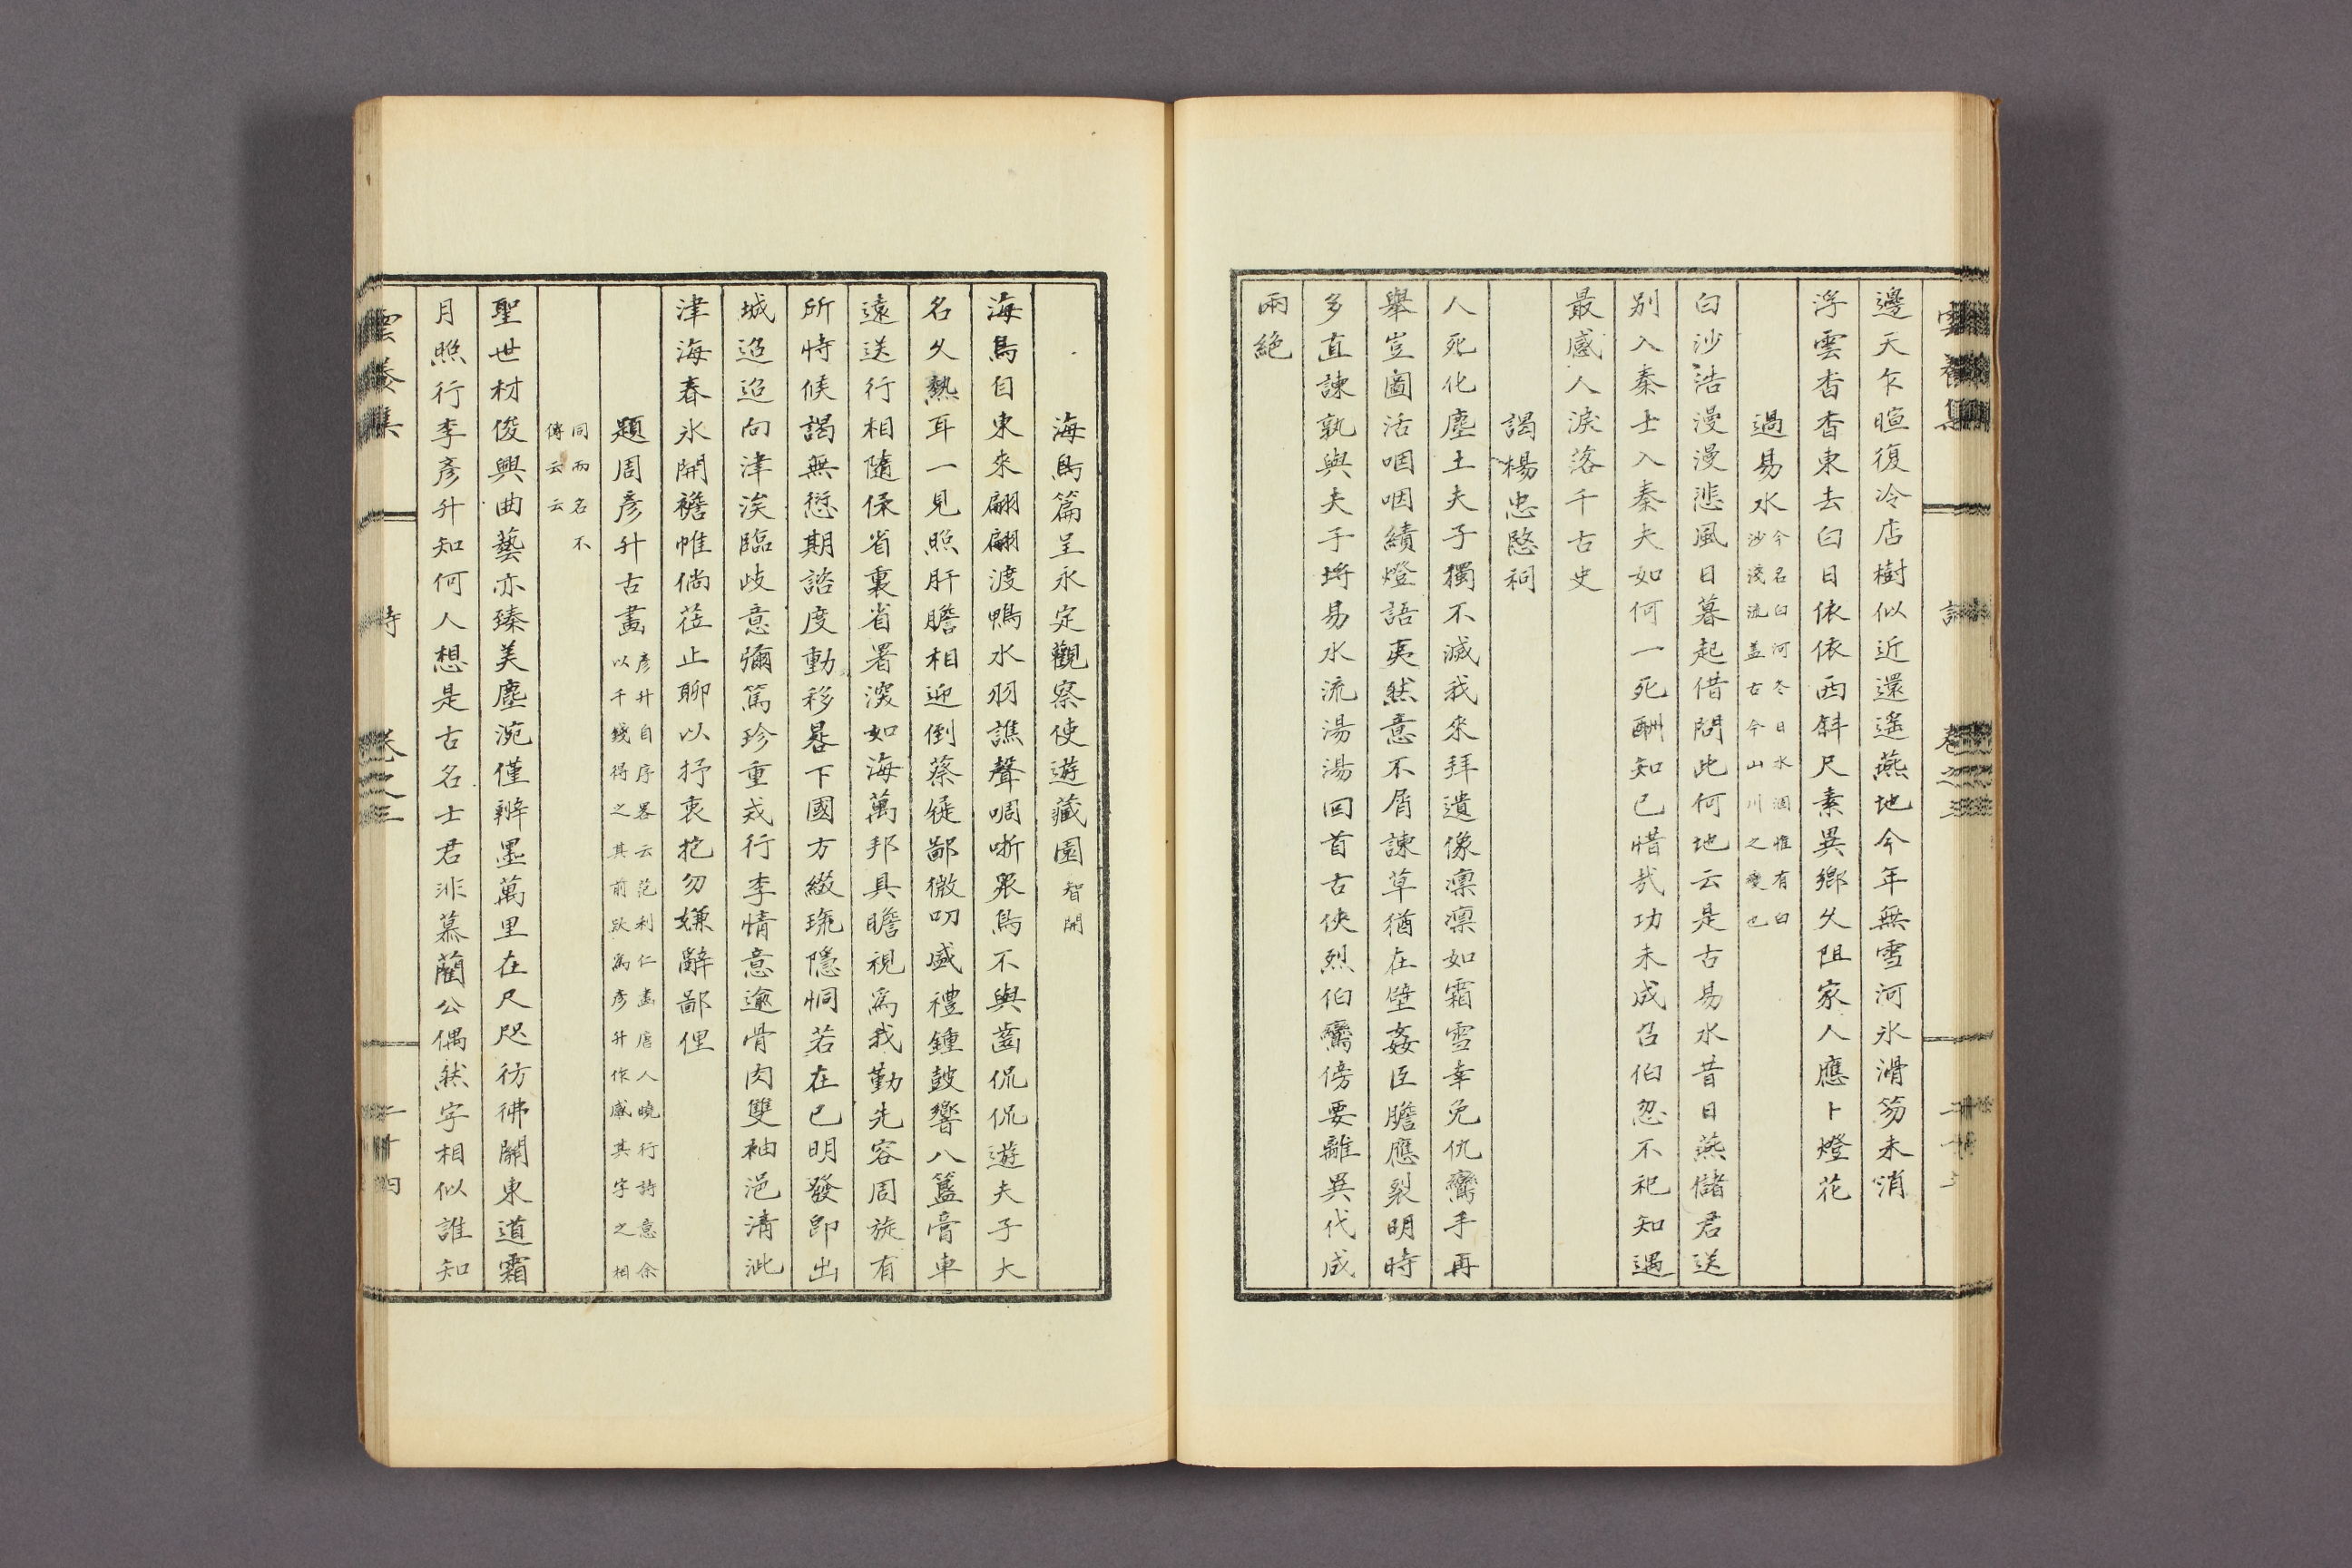 邊天乍暄復冷店樹似近還遙燕地今年無雪河氷滑笏未消
浮雲杳杳東去白日依依西斜尺素異鄉久阻家人應卜燈花
過易水今名白河冬日水涸惟有白沙淺流盖古今山川之變也
白沙浩漫漫悲風日暮起借問此何地云是古易水昔日燕儲君送
別入秦士入秦夫如何一死酬知己惜哉功未成召伯忽不祀知遇
最感人淚落千古史
謁楊忠愍祠
人死化塵土夫子獨不滅我來拜遺像凜凜如霜雪幸免仇鸞手再
擧豈圖活咽咽績燈語夷然意不屑諫草猶在壁姦臣膽應裂明時
多直諫孰與夫子埓易水流湯湯回首古俠烈伯鸞傍要離異代成
兩絶
雲養集 詩 卷之三
海鳥篇呈永定觀察使遊藏園智開
海鳥自東來翩翩渡鴨水羽譙聲啁哳衆鳥不與齒侃侃遊夫子大
名久熱耳一見照肝膽相迎倒蔡縰鄙微叨盛禮鍾鼓響八簋膏車
遠送行相隨保省裏省署深如海萬邦具瞻視爲我勤先容周旋有
所恃候謁無愆期諮度動移晷下國方綴珫隱恫若在己明發卽出
城迢迢向津涘臨歧意彌篤珍重戎行李情意逾骨肉雙袖浥淸泚
津海春氷開襜帷倘莅止聊以抒衷抱勿嫌辭鄙俚
題周彥升古畫彥升自序畧云范利仁畫唐人曉行詩意余以千錢得之其前跋爲彥升作感其字之相
同而名不傳云云
聖世材俊興曲藝亦臻美塵涴僅辨墨萬里在尺咫彷彿關東道霜
月照行李彥升知何人想是古名士君非慕藺公偶然字相似誰知
雲養集 詩 卷之三 二十四